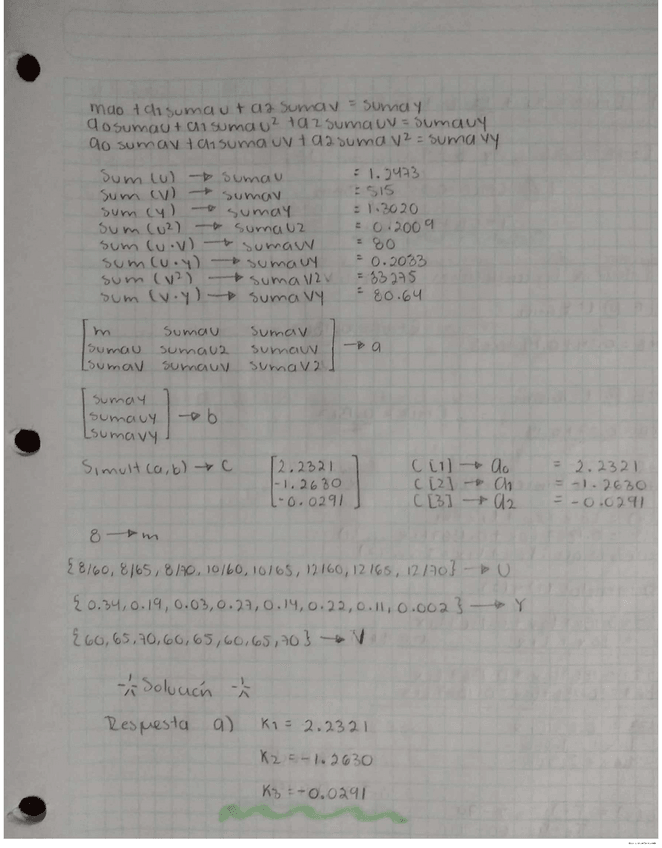 mao + a1 sumau + a2 sumav = sumay
ao sumau + a1 sumau² + a2 sumauv = sumauy
ao sumav + a1 sumauv + a2 sumav² = sumavy
sum (u) → sumau = 1.2473
sum (v) → sumav = 515
sum (y) → sumay = 1.3020
sum (u²) → sumau2 = 0.2009
sum (u·v) → sumauv = 80
sum (u·y) → sumauy = 0.2033
sum (v²) → sumav2 = 33275
sum (v·y) → sumavy = 80.64
[ m sumau sumav
sumau sumau2 sumauv
sumav sumauv sumav2 ] → a
[ sumay
sumauy
sumavy ] → b
Simult (a,b) → c [ 2.2321 C[1] → ao = 2.2321
-1.2630 C[2] → a1 = -1.2630
-0.0291 ] C[3] → a2 = -0.0291
8 → m
{8/60, 8/65, 8/70, 10/60, 10/65, 12/60, 12/65, 12/70} → U
{0.34, 0.19, 0.03, 0.27, 0.14, 0.22, 0.11, 0.002} → Y
{60, 65, 70, 60, 65, 60, 65, 70} → V
Solución
Respuesta a) K1 = 2.2321
K2 = -1.2630
K3 = -0.0291